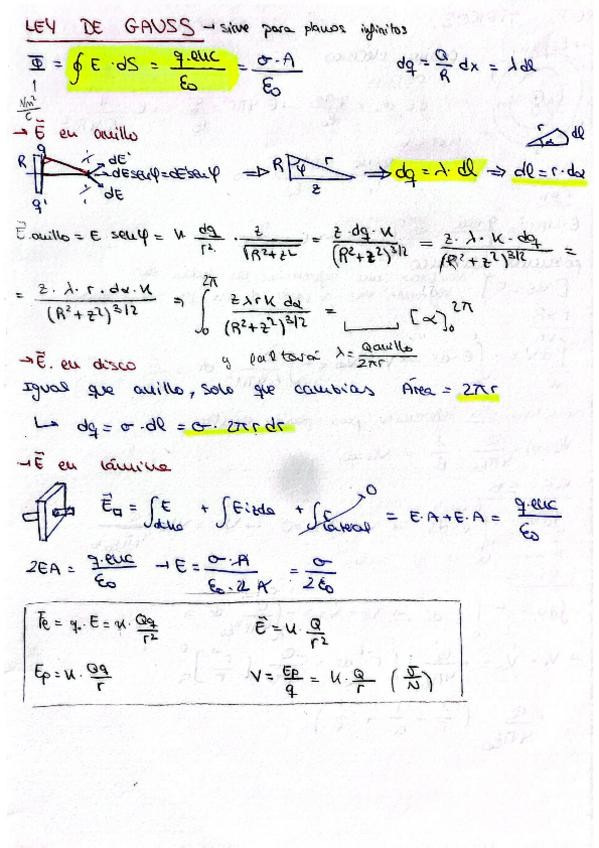 LEY DE GAUSS → sirve para planos infinitos
Φ = ∮ E · dS = q.enc/ε₀ = σ·A/ε₀   dq = Q/R dx = λdl
Nm²/C
→ E⃗ en anillo
q R q' dE' dEsenφ=dE'senφ dE ⇒ R φ r z ⇒ dq = λ·dl ⇒ dl = r·dα   r α dl
E⃗.anillo = E senφ = K dq/r² · z/√(R²+z²) = z·dq·K/(R²+z²)^3/2 = z·λ·K·dq/(R²+z²)^3/2 =
= z·λ·r·dα·K/(R²+z²)^3/2 ⇒ ∫₀^2π zλrK dα/(R²+z²)^3/2 = ____ [α]₀^2π
→ E⃗. en disco   y λ = Qanillo/2πr
Igual que anillo, solo que cambias Área = 2πr
↳ dq = σ·dl = σ·2πr dr
→ E⃗ en lámina
E⃗□ = ∫ E dcha + ∫ E izda + ∫ E lateral 0 = E·A+E·A = q.enc/ε₀
2EA = q.enc/ε₀ → E = σ·A/ε₀·2A = σ/2ε₀
F⃗e = q·E = K·Qq/r²   E⃗ = K·Q/r²
Ep = K·Qq/r   V = Ep/q = K·Q/r (J/N)